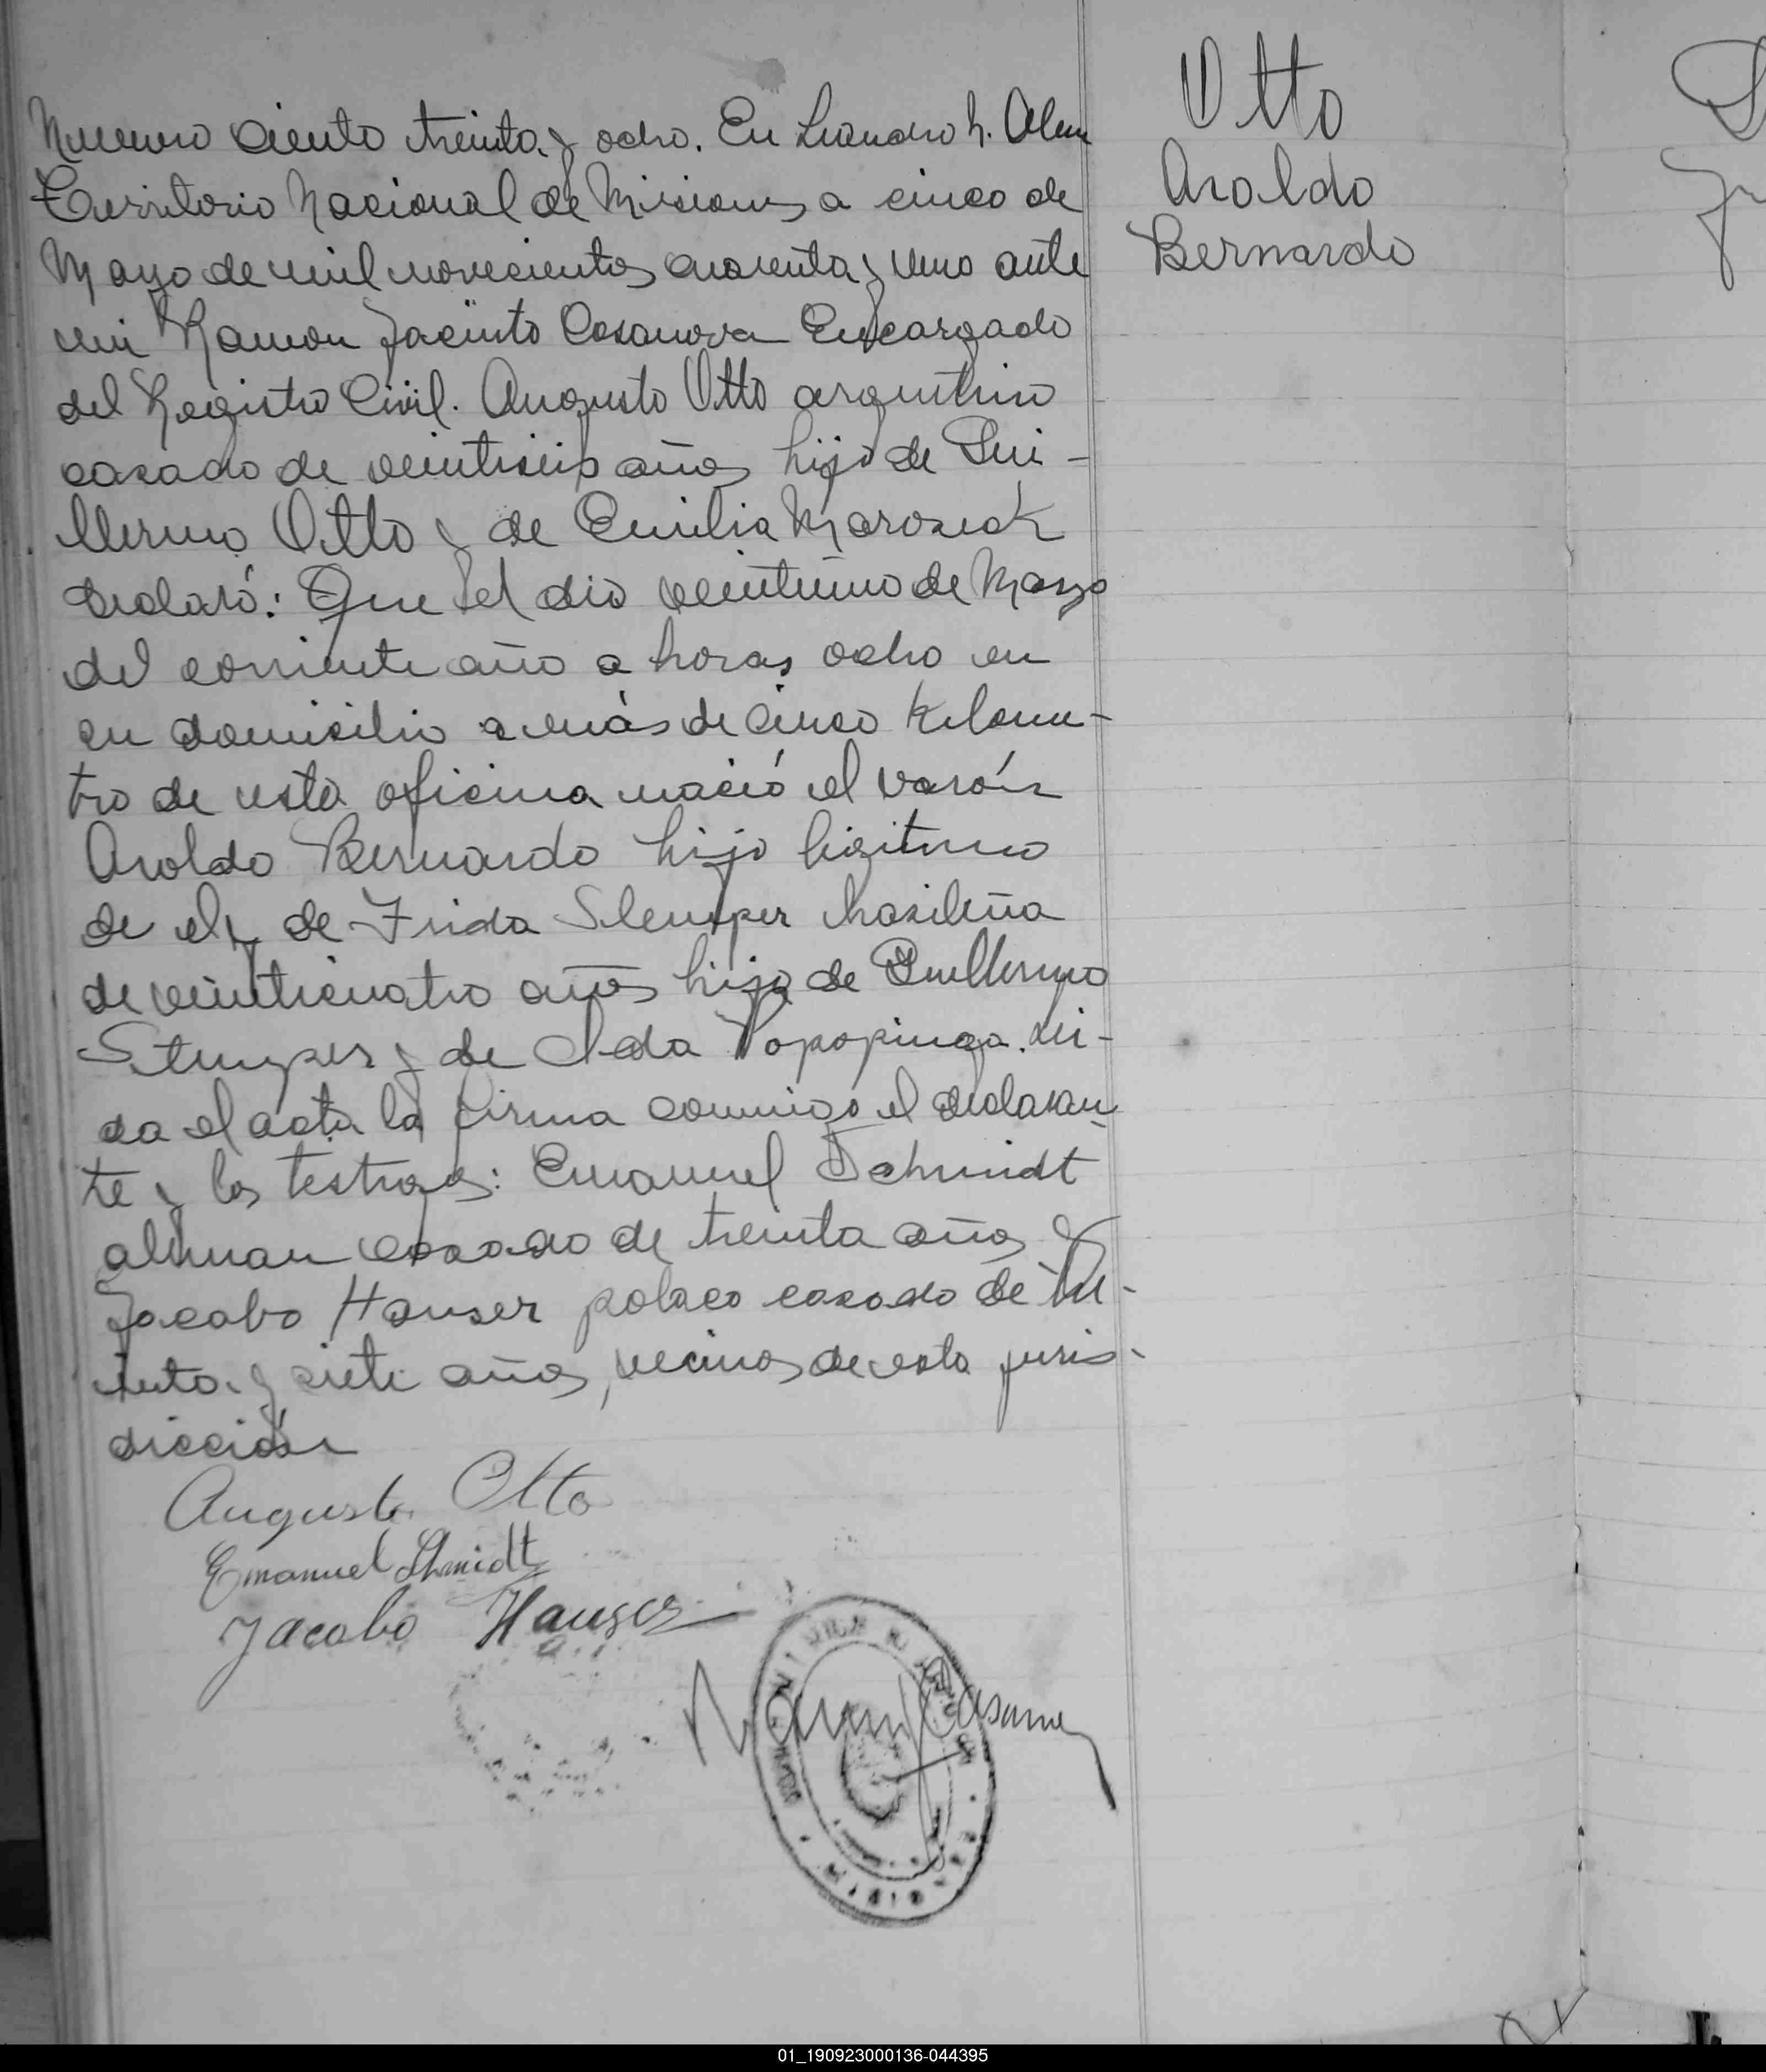 Numero ciento treinta y ocho. En Leandro N. Alem
Territorio Nacional de Misiones a cinco de
Mayo de mil novecientos cuarenta y uno ante
mi Ramon Jacinto Casanova Encargado
del Registro Civil. Augusto Otto argentino
casado de veintiseis años hijo de Gui-
llermo Otto y de Emilia Maroseck
declaró: Que el dia veintiuno de Marzo
del corriente año a horas ocho en
su domicilio a más de cinco kilome-
tro de esta oficina nació el varón
Aroldo Bernardo hijo legitimo
de el y de Frida Stemper brasileña
de veinticuatro años hija de Guillermo
Stemper y de Ida Popopinga. Lei-
da el acta la firma conmigo el declaran-
te y los testigos: Emanuel Schmidt
aleman casado de treinta años y
Jacobo Hauser polaco casado de tre-
inta y siete años, vecinos de esta juris-
dicción
Augusto Otto
Emanuel Schmidt
Jacobo Hauser
Ramon J Casanova
MISIONES
Otto
Aroldo
Bernardo
01_190923000136-044395